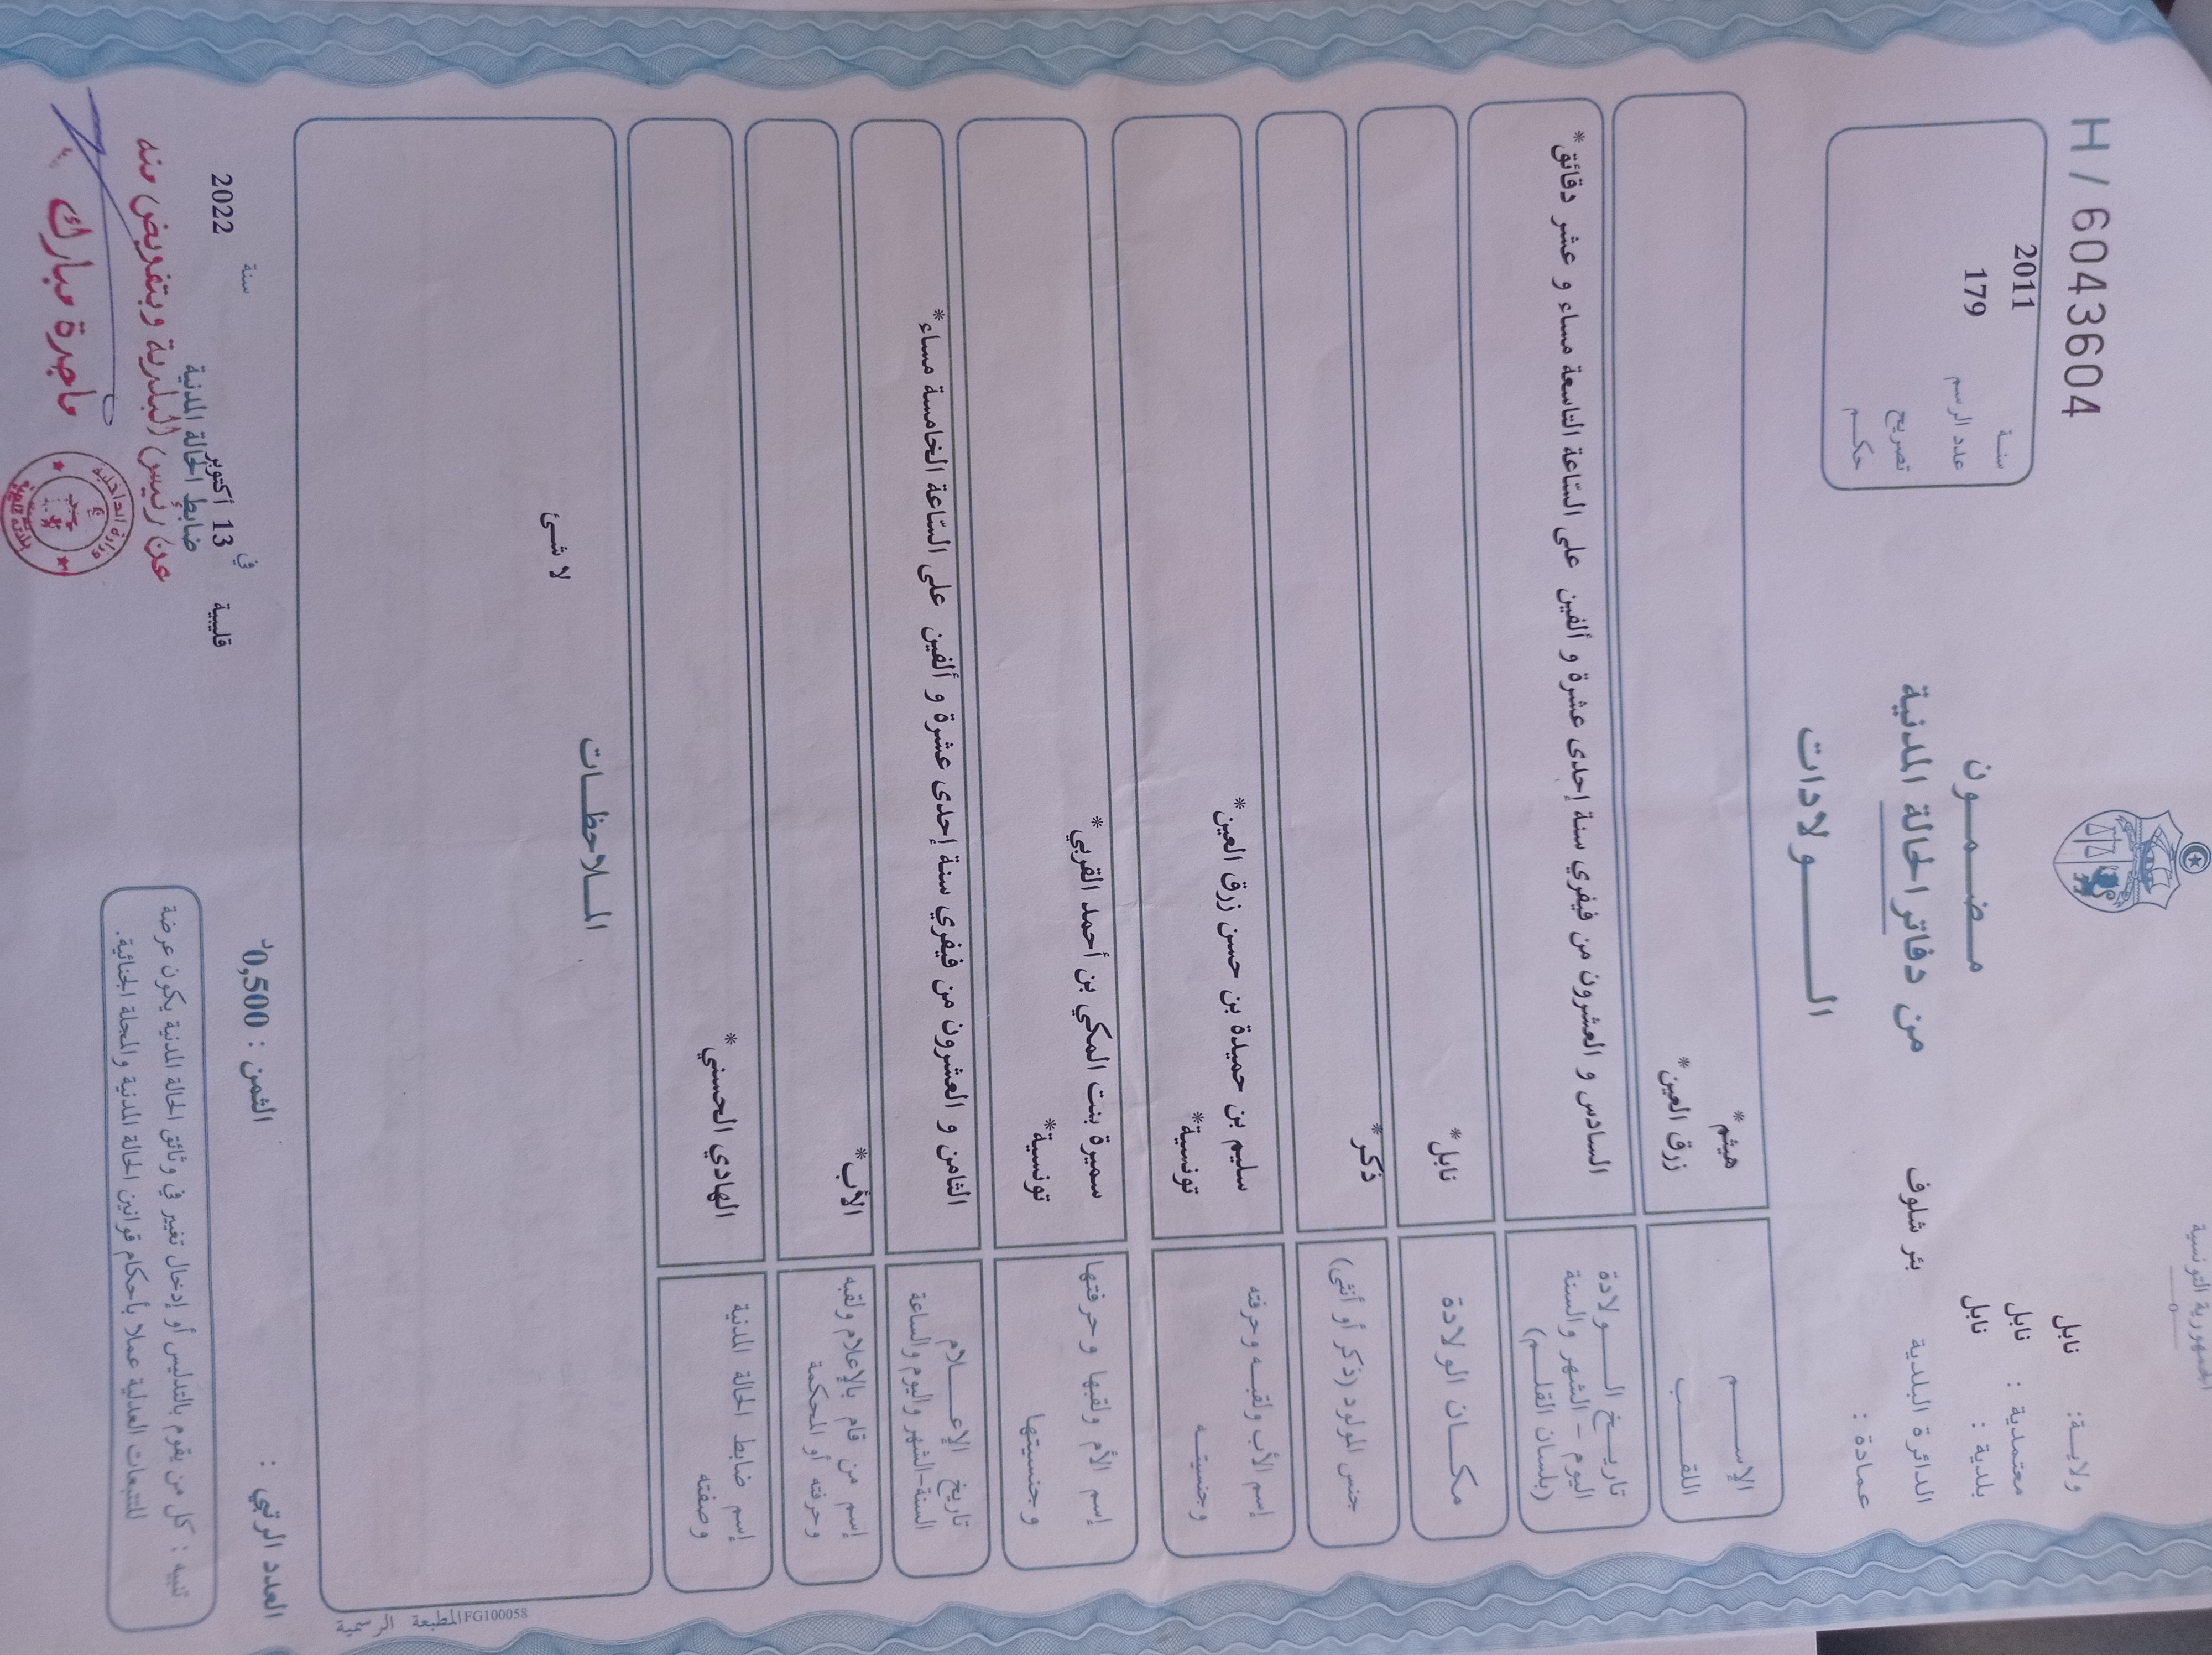 الجمهورية التونسية
ولايـــة: نابل
معتمدية : نابل
بلدية : نابل
الدائرة البلدية بئر شلوف
عمادة :
H / 6043604
سنـــة 2011
عدد الرسم 179
تصريح
حكــم
مـــضـــمـــون
من دفاتر الحالة المدنية
الـــــولادات
الإســـــم هيثم*
اللقـــــب زرق العين*
تاريـــخ الـــــولادة
اليوم - الشهر والسنة
(بلسان القلـــم)
السادس و العشرون من فيفري سنة إحدى عشرة و ألفين على السّاعة التاسعة مساء و عشر دقائق*
مكـــان الولادة نابل*
جنس المولود (ذكر أو أنثى) ذكر*
إسم الأب ولقبـــه وحرفته سليم بن حميدة بن حسن زرق العين*
وجنسيتـــه تونسية*
إسم الأم ولقبها وحرفتها سميرة بنت المكي بن أحمد القربي*
وجنسيتها تونسية*
تاريخ الإعـــــلام
السنة-الشهر واليوم والساعة
الثامن و العشرون من فيفري سنة إحدى عشرة و ألفين على السّاعة الخامسة مساء*
إسم من قام بالإعلام ولقبه
وحرفته أو المحكمة
الأب*
إسم ضابط الحالة المدنية
وصفته
الهادي الحسني*
المـــلاحظـــات
لا شئ
المطبعة الرسمية FG100058
العدد الرتبي :
الثمن : 0,500د
قليبية في 13 أكتوبر سنة 2022
ضابط الحالة المدنية
عن رئيس البلدية وبتفويض منه
ماجدة مبارك
وزارة الداخلية
تنبيه : كل من يقوم بالتدليس أو إدخال تغيير في وثائق الحالة المدنية يكون عرضة
للتتبعات العدلية عملا بأحكام قوانين الحالة المدنية والمجلة الجنائية.